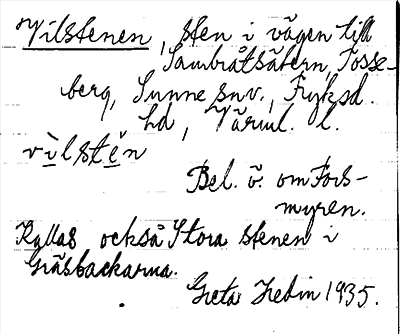 Vilstenen, sten i vägen till
Sambråtsätern, Tosse-
berg, Sunne snv., Fryksd.
hd, Värml. l.
vìlstén
Bel. ö. om Fors-
myren.
Kallas också Stora stenen i
Gräsbackarna.
Greta Hedin 1935.